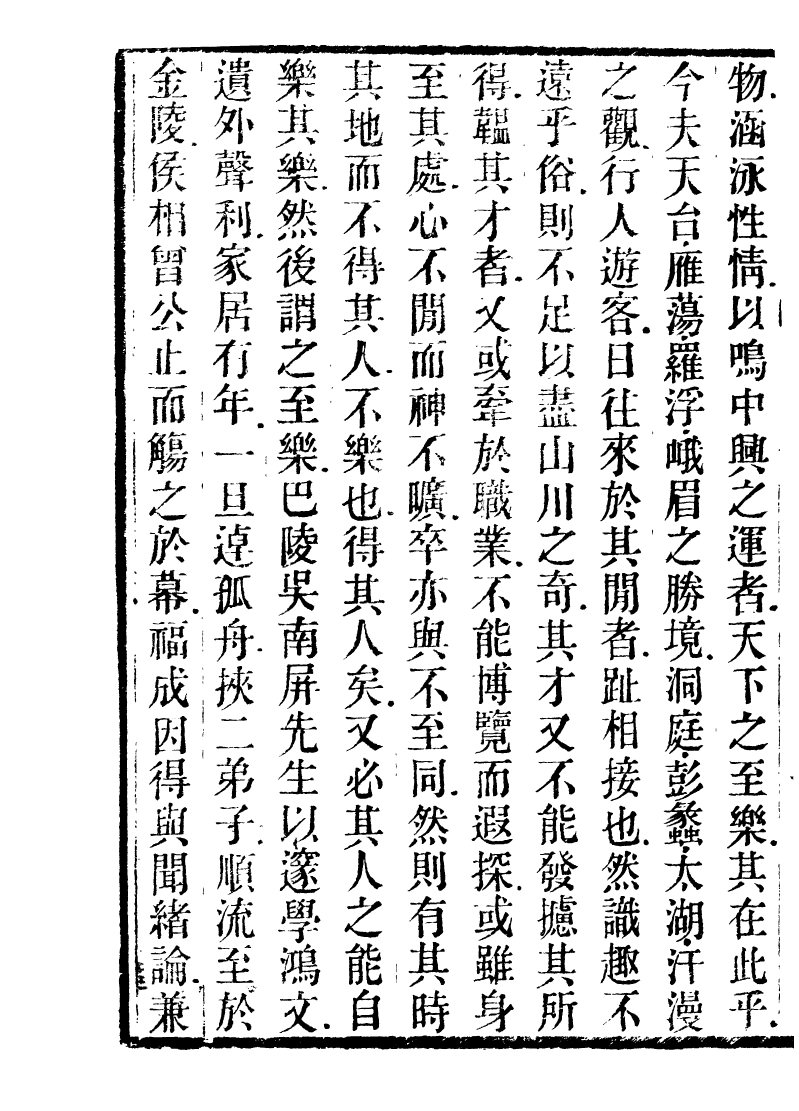 物涵泳性情以鳴中興之運者天下之至樂其在此乎
今夫天台雁蕩羅浮峨眉之勝境洞庭彭蠡太湖汗漫
之觀行人遊客日往來於其閒者趾相接也然識趣不
遠乎俗則不足以盡山川之奇其才又不能發攄其所
得韞其才者又或牽於職業不能博覽而遐探或雖身
至其處心不閒而神不曠卒亦與不至同然則有其時
其地而不得其人不樂也得其人矣又必其人之能自
樂其樂然後謂之至樂巴陵吳南屏先生以邃學鴻文
遺外聲利家居有年一旦逴孤舟挾二弟子順流至於
金陵侯相曾公止而觴之於幕福成因得與聞緒論兼